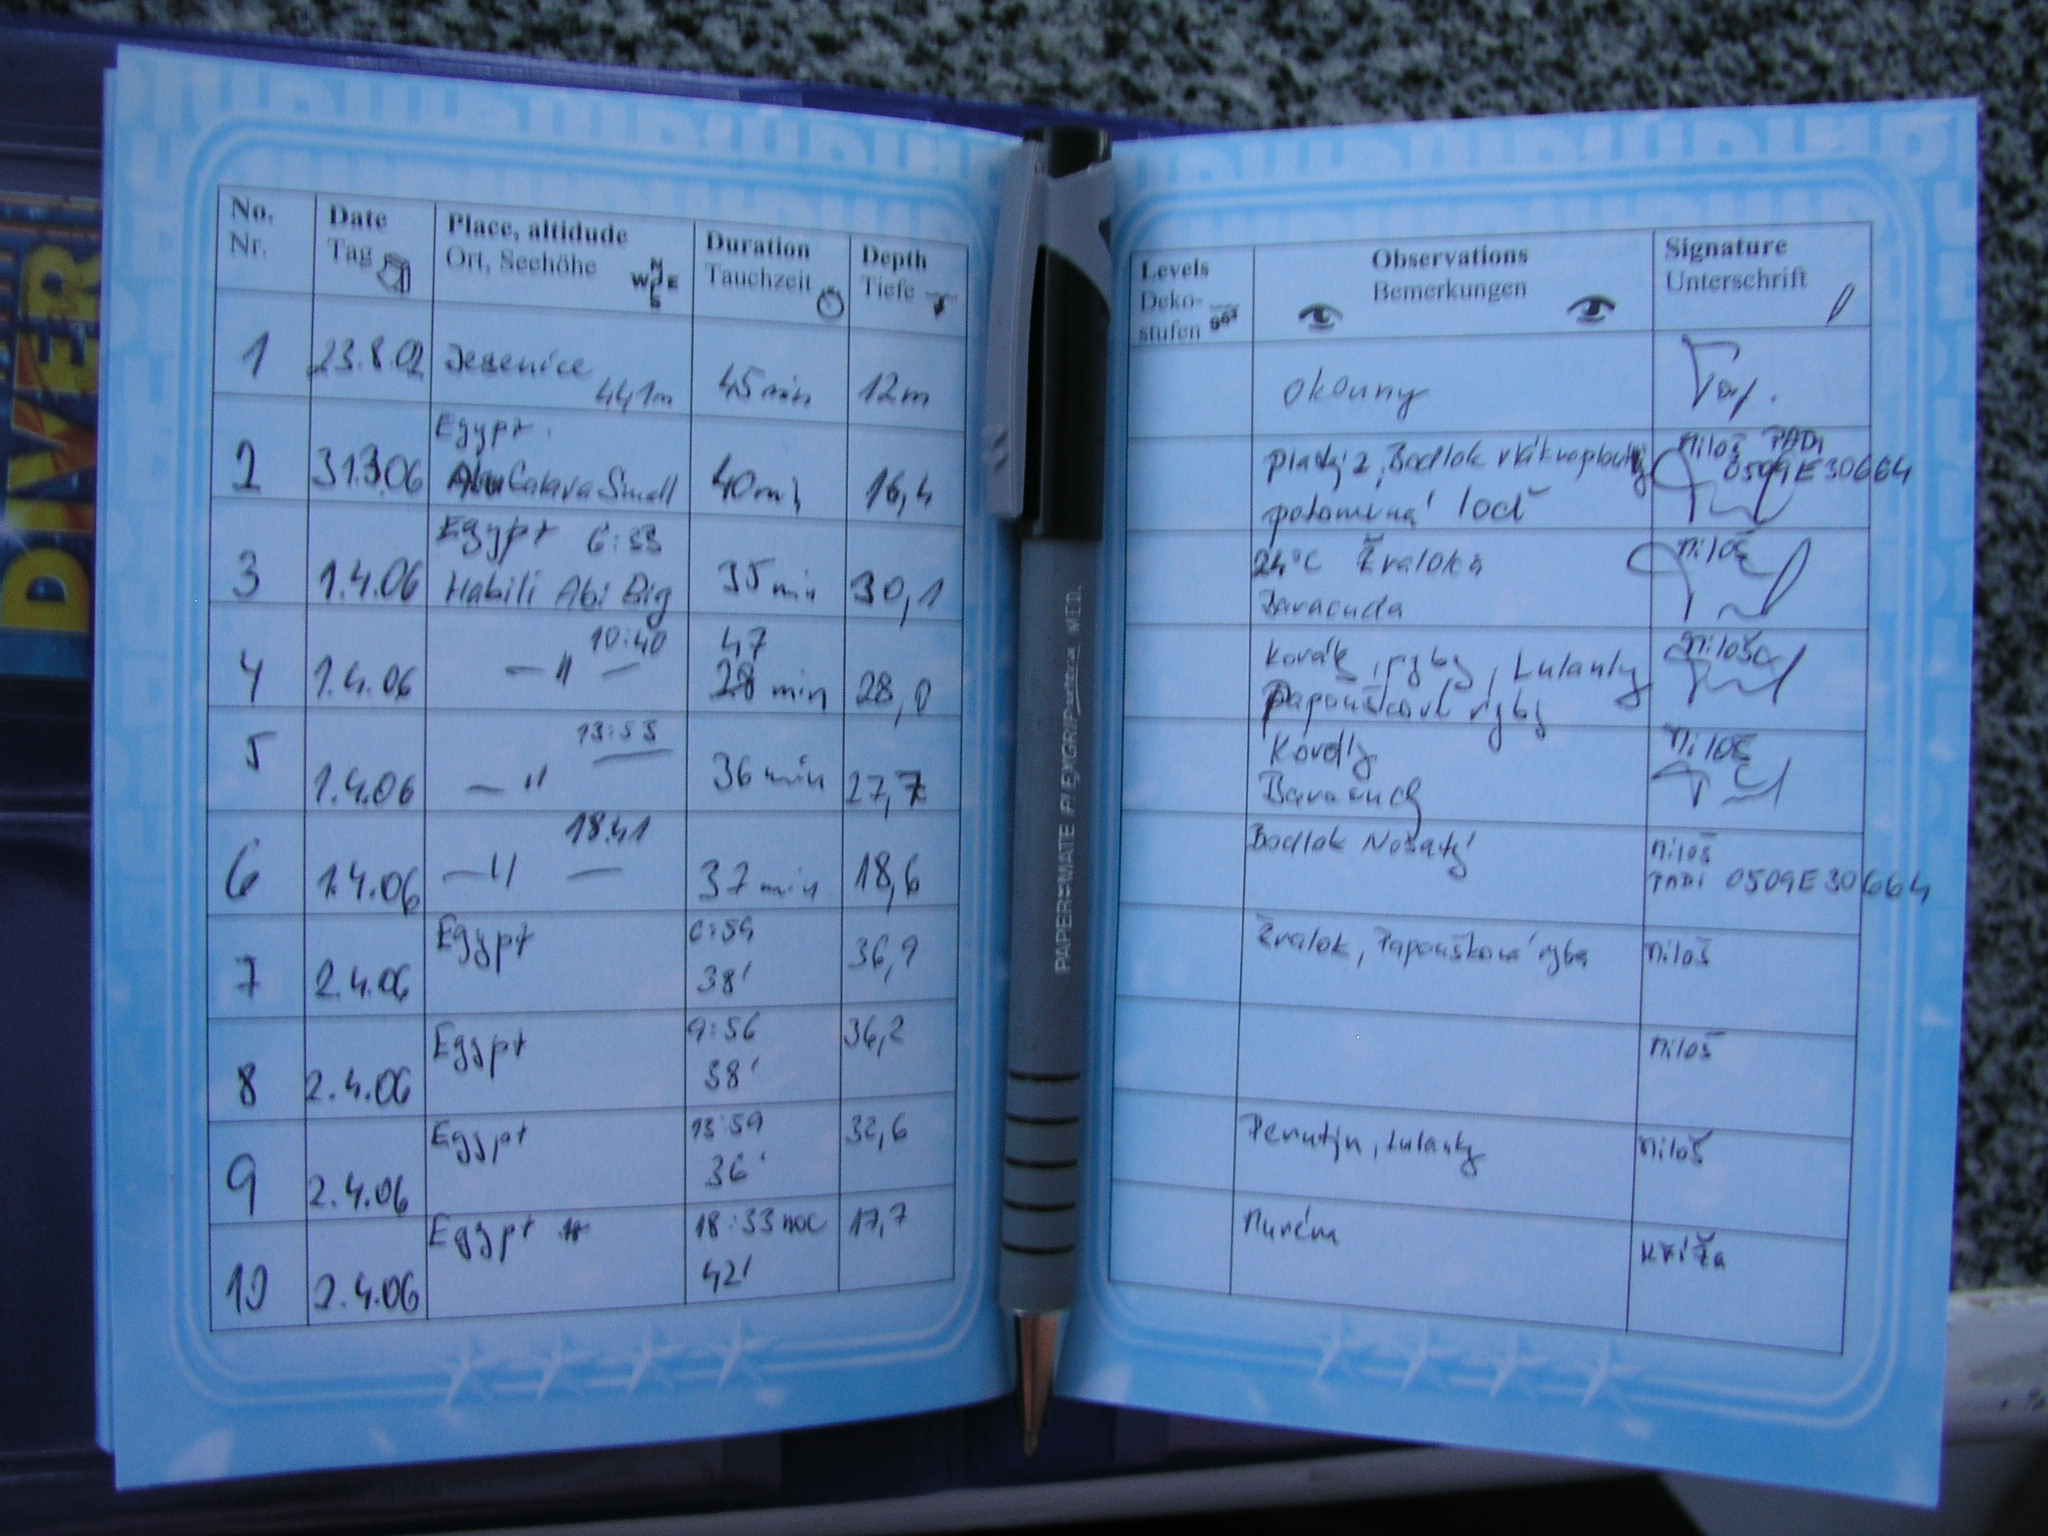 DIVER
No. Date Place, altidude Duration Depth
Nr. Tag Ort, Seehöhe Tauchzeit Tiefe
N W E S
1 23.8.02 Jesenice 441m 45min 12m
Egypt
2 31.3.06 Small 40min 16,4
Egypt 6:53
3 1.4.06 Habili Abi Big 35min 30,1
10:40 47
4 1.4.06 — " — 28 min 28,0
13:55
5 1.4.06 — " — 36 min 27,7
18:41
6 1.4.06 — " — 37 min 18,6
Egypt 6:59
7 2.4.06 38' 36,9
Egypt 9:56 36,2
8 2.4.06 38'
Egypt 13:59 32,6
9 2.4.06 36'
Egypt 18:33 noc 17,7
10 2.4.06 42'
PAPER=MATE FLEXGRIP MED.
Levels Observations Signature
Deko- Bemerkungen Unterschrift
stufen
okouny
Bodlok Miloš PADI
potopená loď 0509E30664
24°C Žralok Miloš
Baracuda
Korály, ryby, Lulanky Miloš
Papouškové ryby
Korály Miloš
Baracudy
Bodlok Nosatý Miloš
PADI 0509E30664
Žralok, Papoušková ryba Miloš
Miloš
Perutýn, Lulanky Miloš
Muréna
Kříža